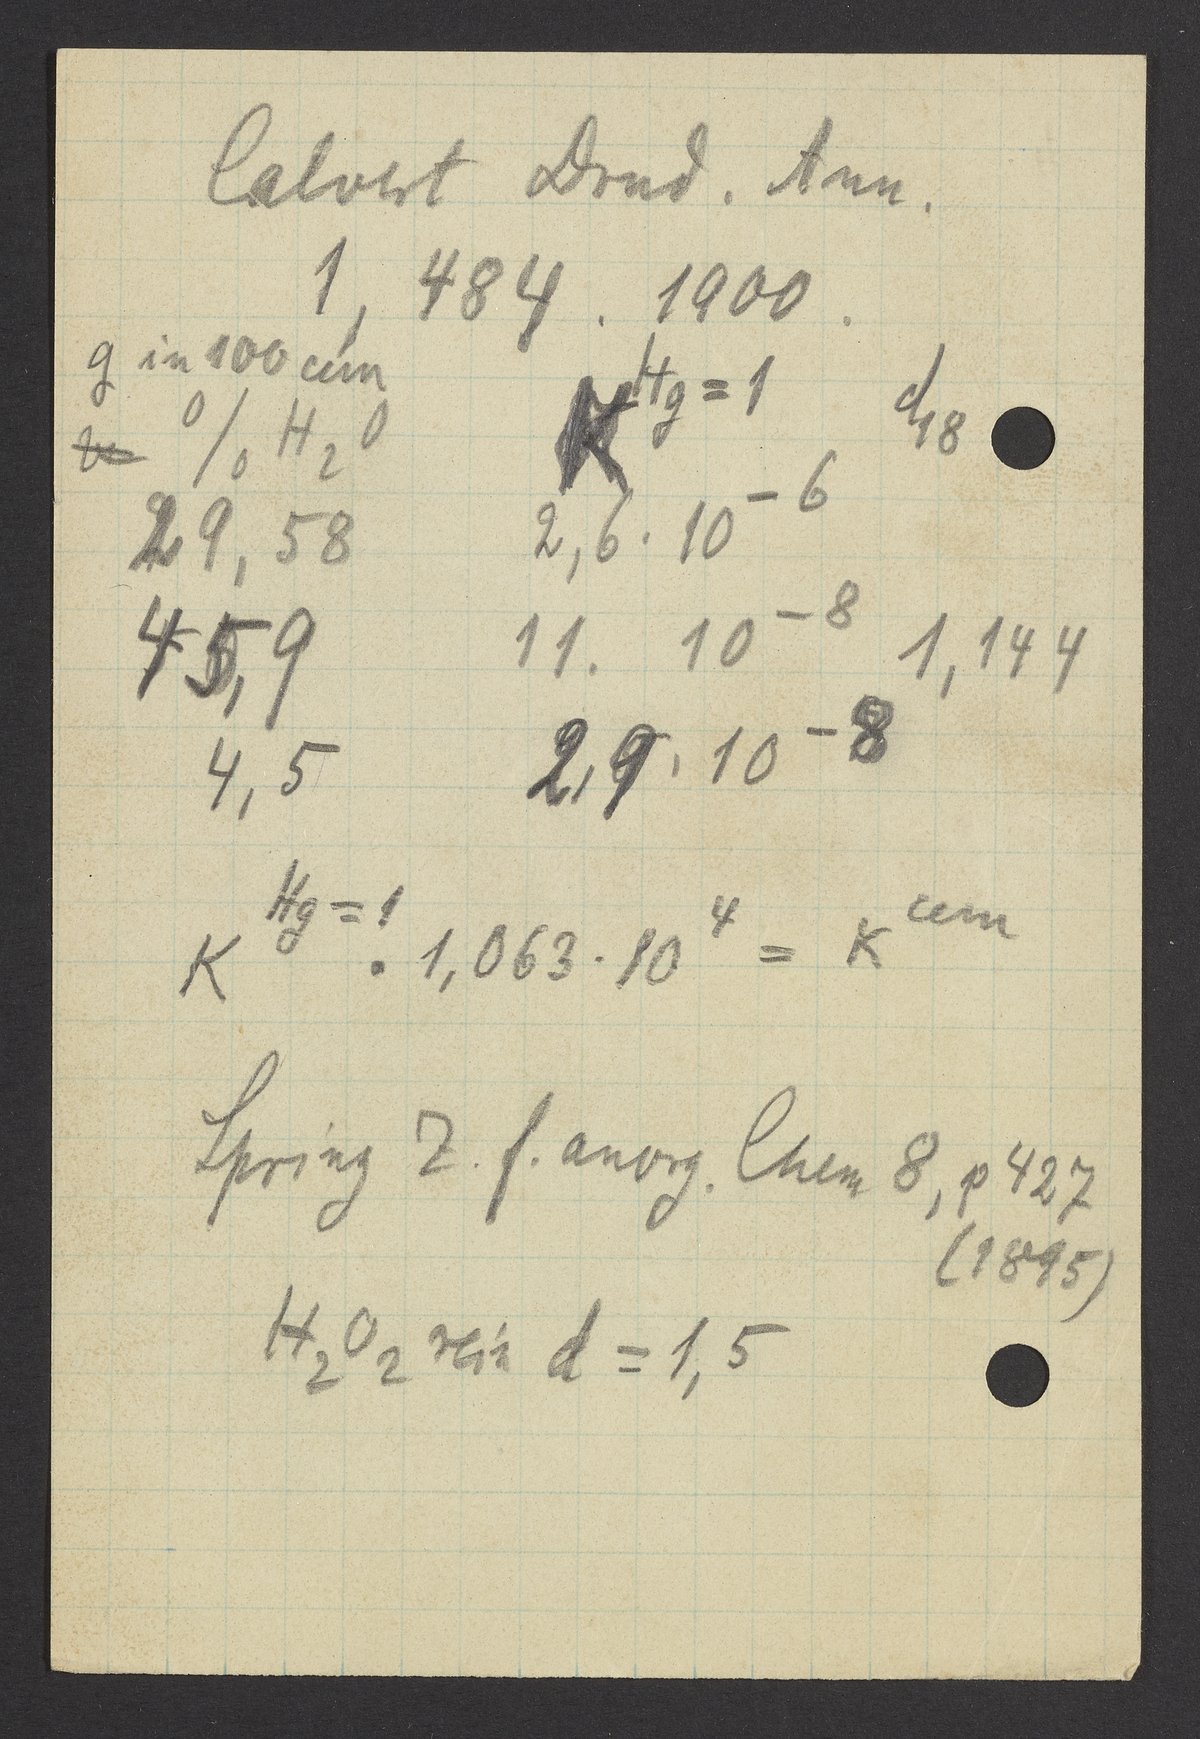 Calvert Drud. Ann.
1, 484. 1900.
g in 100 ccm
% H2O K Hg=1 d18
29,58 2,6·10−6
45,9 11. 10−8 1,144
4,5 2,9·10−8
K Hg=1 · 1,063·10 4 = K ccm
Spring Z. f. anorg. Chem 8, p 427
(1895)
H2O2 rein d = 1,5